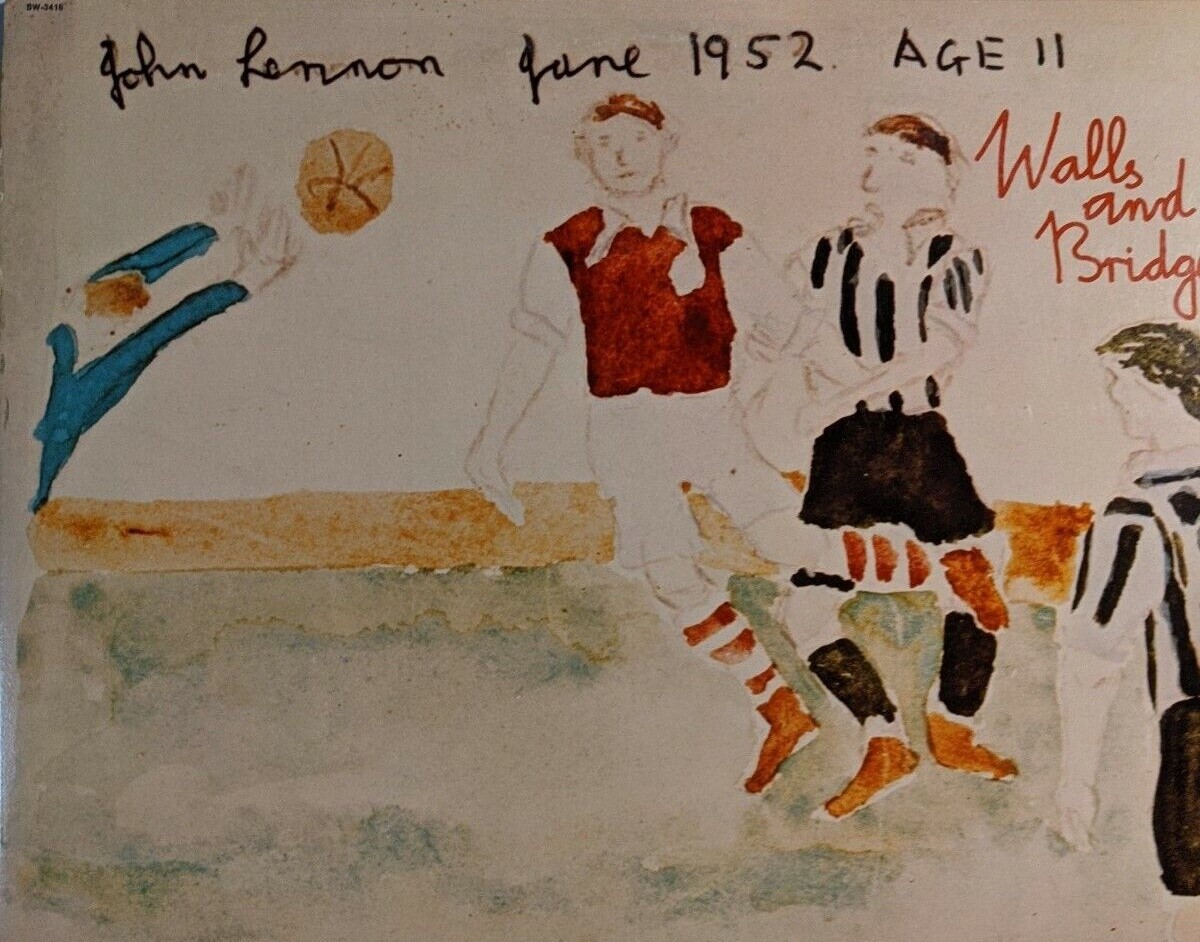 SW-3416
John Lennon June 1952. AGE 11
Walls
and
Bridg